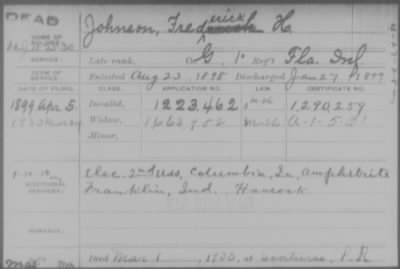 DEAD
Johnson, Frederick H.
NAME OF SOLDIER
SERVICE: Late rank, Co G, 1 Reg't Fla. Inf.
TERM OF SERVICE: Enlisted Aug 23, 1898 Discharged Jan 27, 1899
DATE OF FILING. CLASS. APPLICATION NO. LAW. CERTIFICATE NO.
1899 Apr 5. Invalid, 1223.462 1,290,259
Widow, A-1-5-21
Minor,
ADDITIONAL SERVICES: Elec. 2nd U.S.S. Columbia, Ia, Amphitrite
Franklin, Ind. Hancock
REMARKS:
Died Mar 1, 1920, at Santurce, P.R.